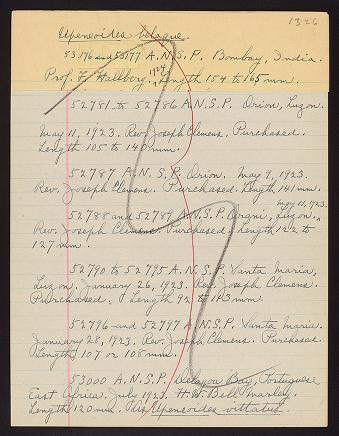 1326
Upeneoides belaque.
53176 and 53177 A.N.S.P. Bombay, India.
Prof. F. Hallberg. 1924. Length 154 to 165 mm.
52781 to 52786 A.N.S.P. Orion, Luzon.
May 11, 1923. Rev. Joseph Clemens. Purchased.
Length 105 to 140 mm.
52787 A.N.S.P. Orion. May 9, 1923.
Rev. Joseph Clemens. Purchased. Length 141 mm.
May 11, 1923.
52788 and 52789 A.N.S.P. Orani, Luzon.
Rev. Joseph Clemens. Purchased. Length 122 to
127 mm.
52790 to 52795 A.N.S.P. Santa Maria,
Luzon. January 26, 1923. Rev. Joseph Clemens.
Purchased. Length 92 to 103 mm.
52796 and 52797 A.N.S.P. Santa Maria.
January 28, 1923. Rev. Joseph Clemens. Purchased.
Length 107 or 108 mm.
53000 A.N.S.P. Delagoa Bay, Portuguese
East Africa. July 1923. H.W. Bell Marley.
Length 120 mm. This Upeneoides vittatus.